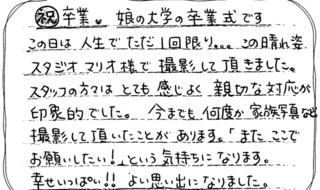 ㊗卒業。娘の大学の卒業式です
この日は人生でただ1回限り。。。この晴れ姿
スタジオマリオ様で撮影して頂きました。
スタッフの方々は とても感じよく 親切な対応が
印象的でした。 今までも 何度か 家族写真など
撮影して頂いたことが あります。「また ここで
お願いしたい!」という 気持ちに なります。
幸せいっぱい!! よい思い出に なりました。